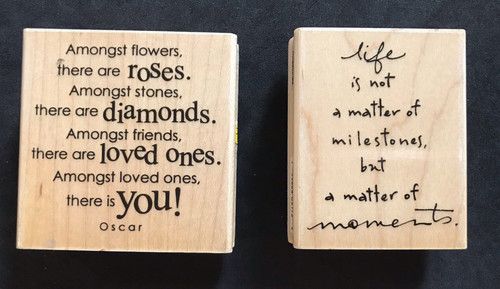 Amongst flowers,
there are roses.
Amongst stones,
there are diamonds.
Amongst friends,
there are loved ones.
Amongst loved ones,
there is you!
Oscar
life
is not
a matter of
milestones,
but
a matter of
moments.